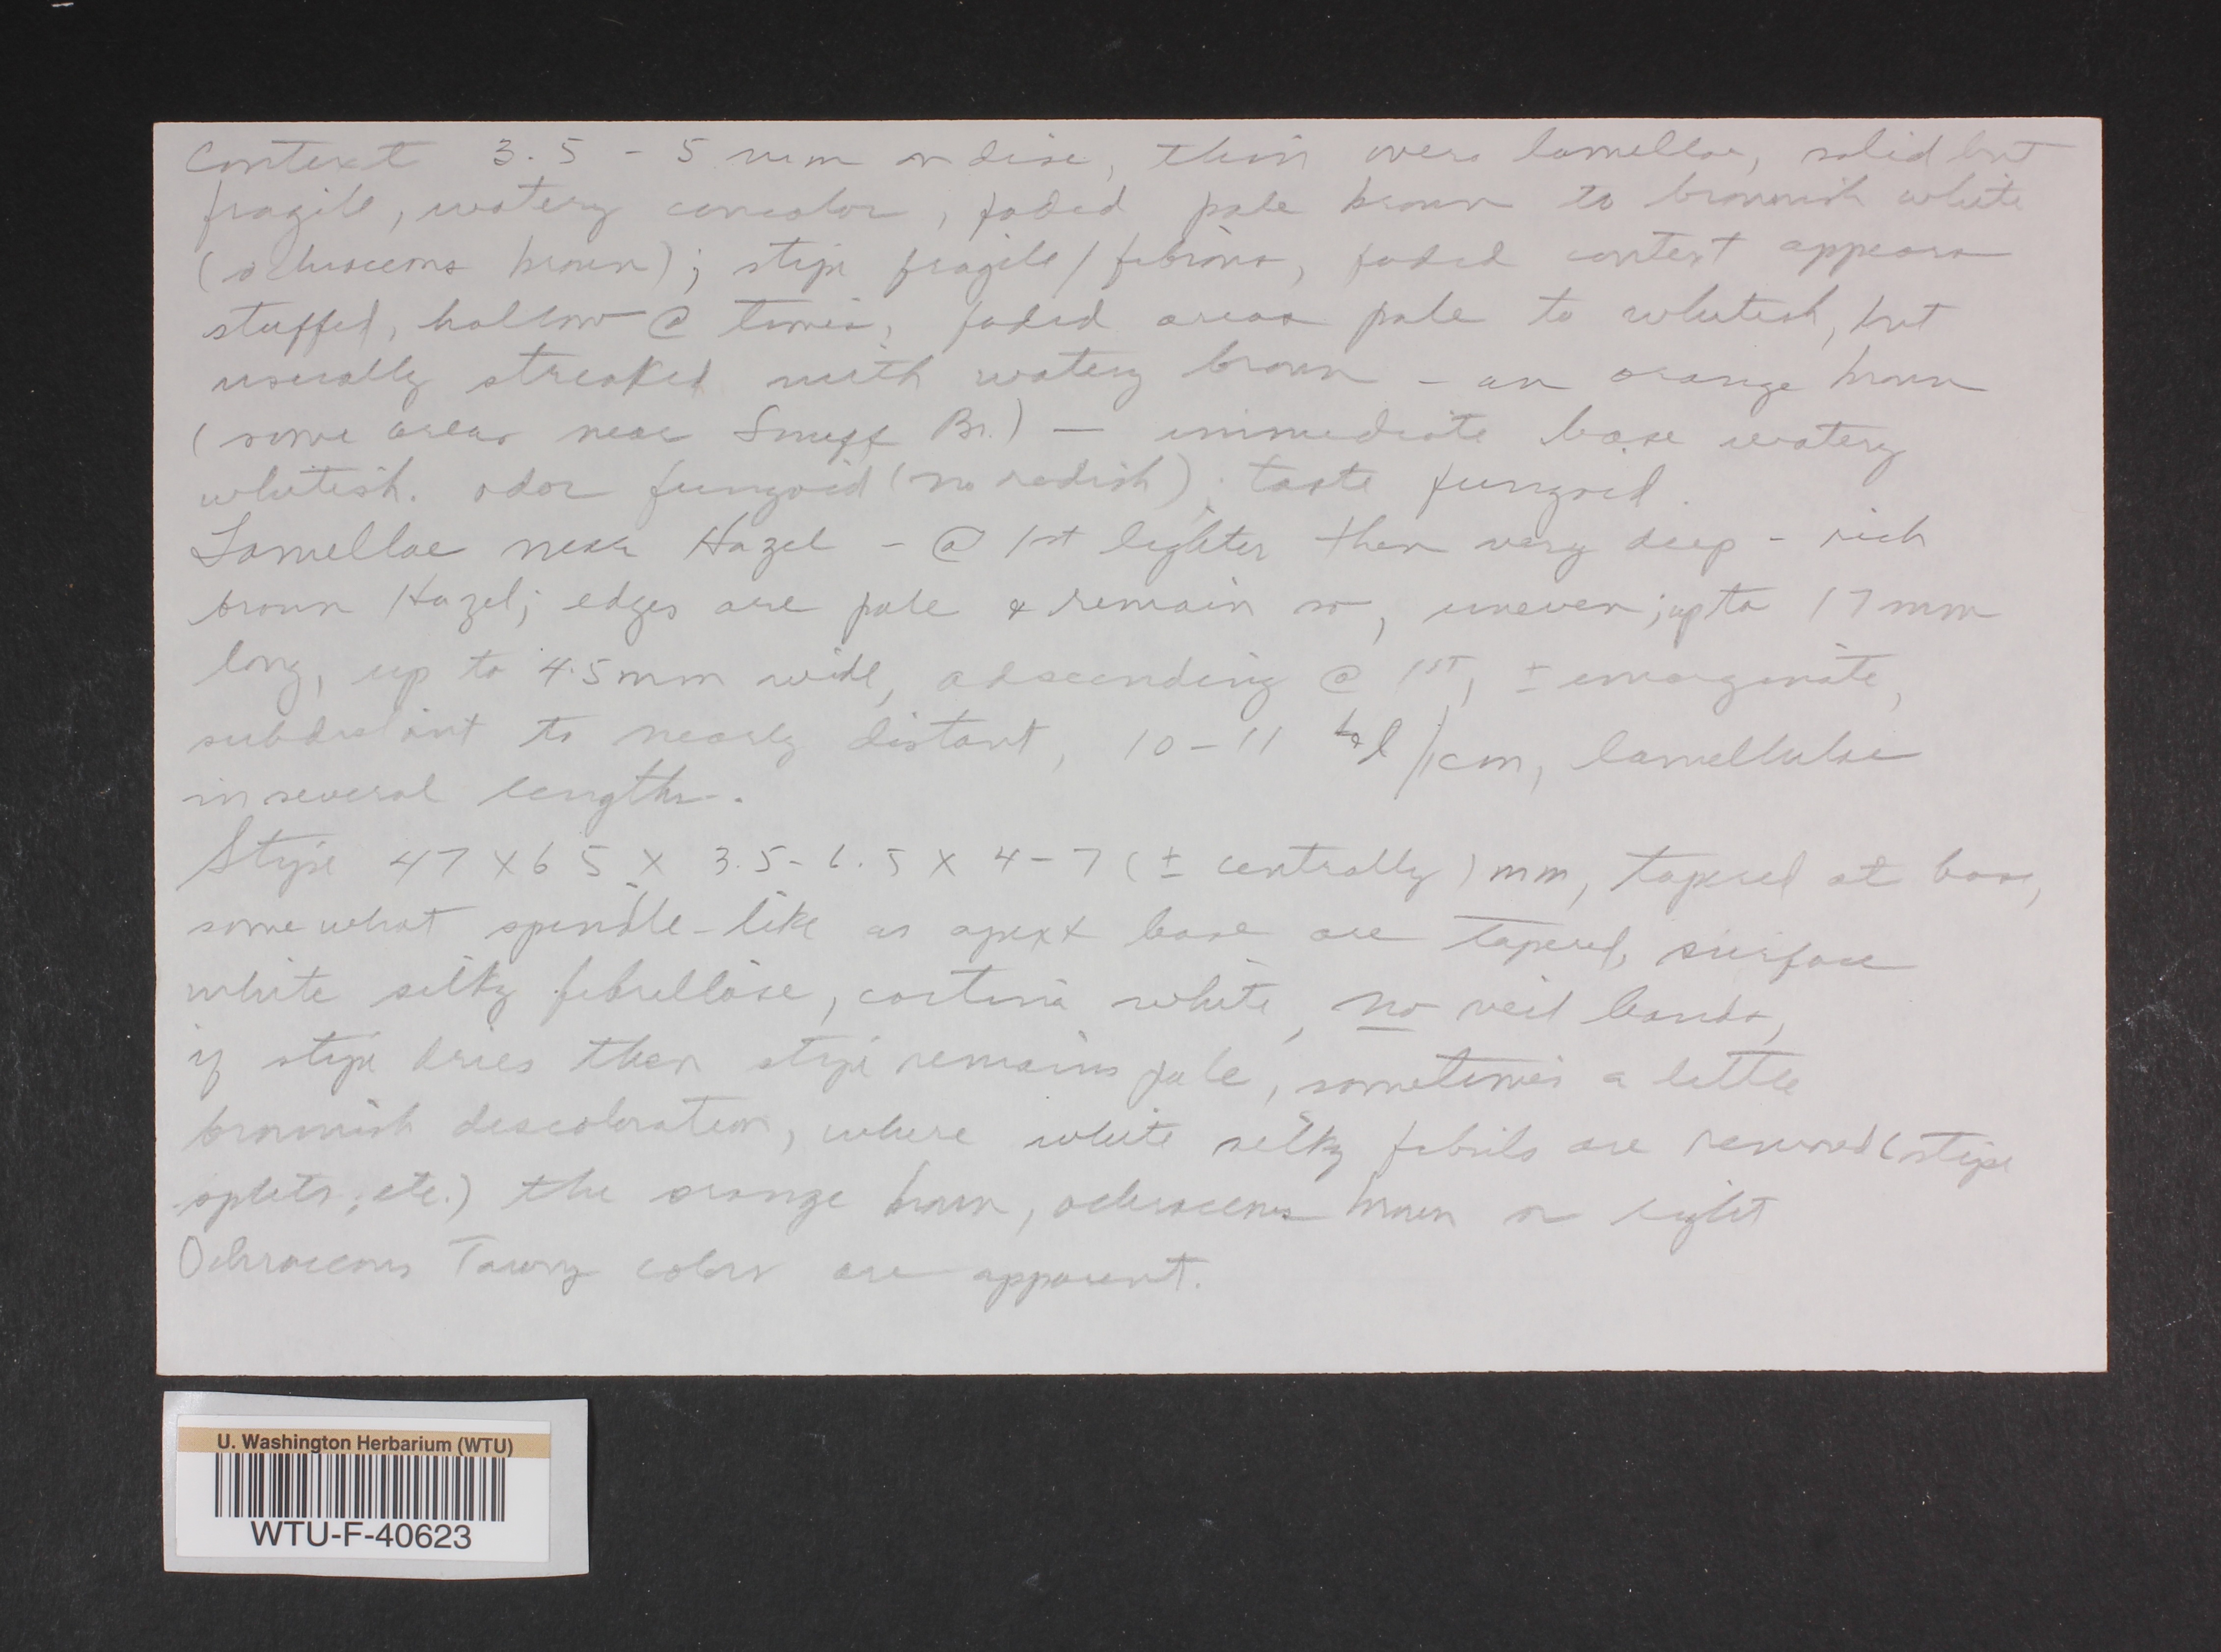 Context 3.5 - 5 mm on disc, thin over lamellae, solid but
fragile, watery concolor, faded pale brown to brownish white
(ochraceous brown); stipe fragile/fibrous, faded context appears
stuffed, hollow @ times, faded areas pale to whitish, but
usually streaked with watery brown - an orange brown
(some areas near Snuff Br.) — immediate base watery
whitish. odor fungoid (no radish); taste fungoid.
Lamellae near Hazel - @ 1st lighter then very deep - rich
brown Hazel; edges are pale & remain so, uneven; up to 17 mm
long, up to 4.5 mm wide, adscending @ 1ST, ± emarginate,
subdistant to nearly distant, 10-11 l/1cm, lamellulae
in several lengths.
Stipe 47 x 65 x 3.5-6.5 x 4-7 (± centrally) mm, tapered at base,
somewhat spindle-like as apex & base are tapered, surface
white silky fibrillose, cortina white, no veil bands,
if stipe dries then stipe remains pale, sometimes a little
brownish discoloration, where white silky fibrils are removed (stipe
splits, etc.) the orange brown, ochraceous brown or light
Ochraceous Tawny colors are apparent.
U. Washington Herbarium (WTU)
WTU-F-40623